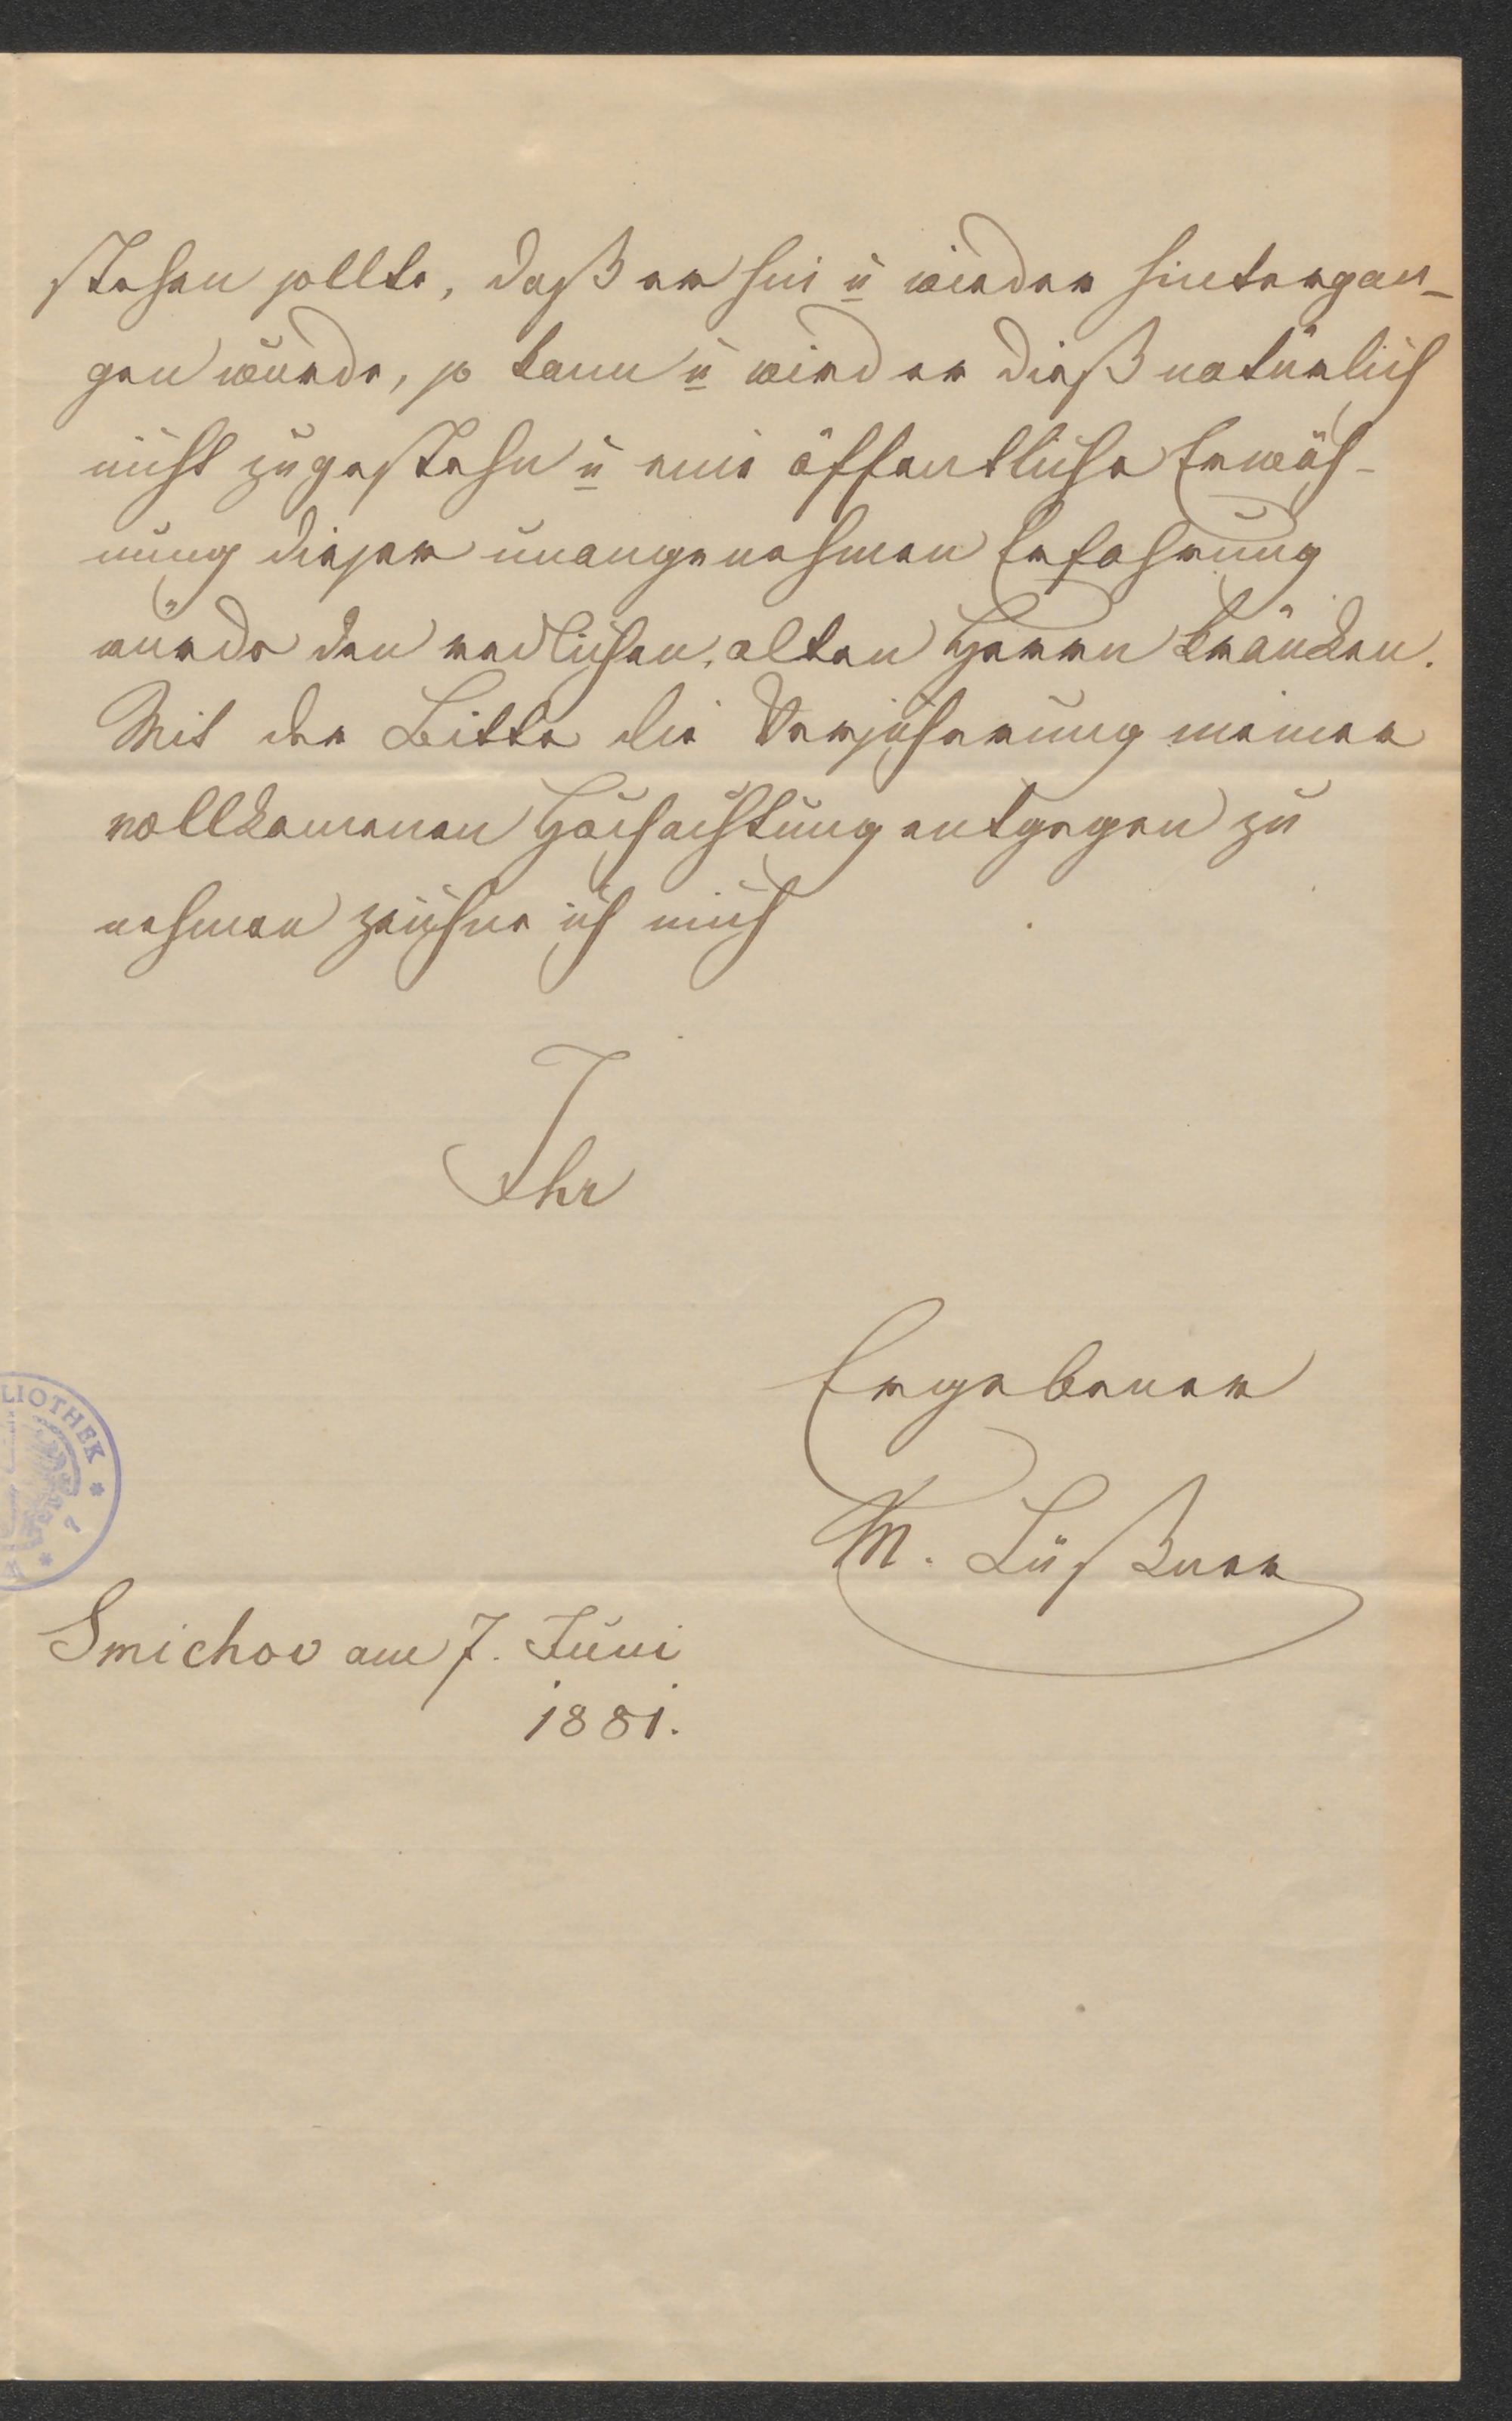 stehen sollte, daß er hin u wieder hintergan-
gen wurde, so kann u wird er dieß natürlich
nicht zugestehn u eine öffentliche Erwäh-
nung dieser unangenehmen Erfahrung
würde den redlichen, alten Herrn kränken.
Mit der Bitte die Versicherung meiner
vollkomenen Hochachtung entgegen zu
nehmen zeichne ich mich
Ihr
Ergebener
M. Lüßner
LIOTHEK
Smichov am 7. Juni
1881.